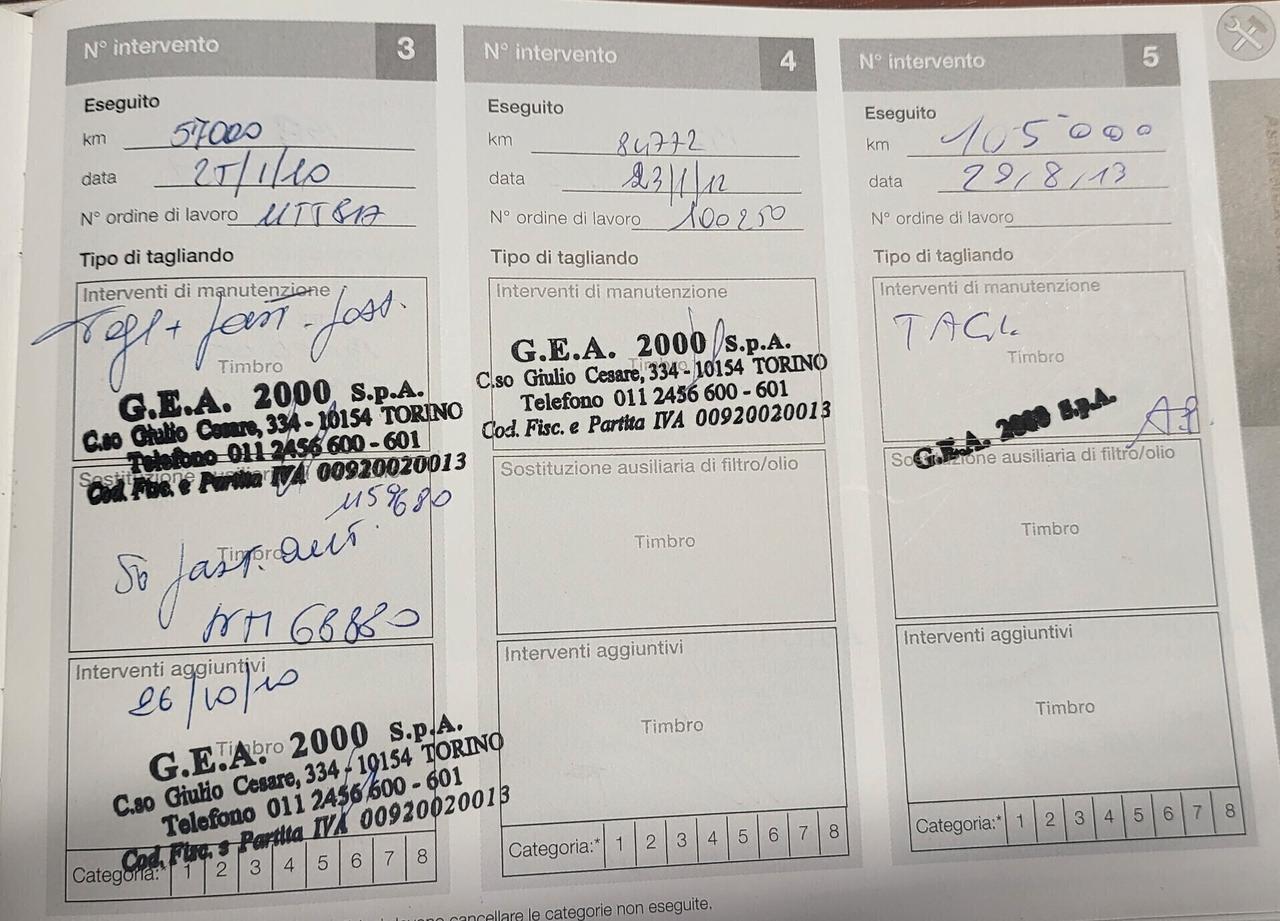 N° intervento 3
Eseguito
km 57000
data 25/1/10
N° ordine di lavoro
Tipo di tagliando
Interventi di manutenzione
Timbro
G.E.A. 2000 S.p.A.
C.so Giulio Cesare, 334 - 10154 TORINO
Telefono 011 2456 600 - 601
Cod. Fisc. e Partita IVA 00920020013
Timbro
68880
Interventi aggiuntivi
26/10/10
Timbro
G.E.A. 2000 S.p.A.
C.so Giulio Cesare, 334 - 10154 TORINO
Telefono 011 2456 600 - 601
Cod. Fisc. e Partita IVA 00920020013
Categoria:* 1 2 3 4 5 6 7 8
N° intervento 4
Eseguito
km 84772
data 23/1/12
N° ordine di lavoro 100250
Tipo di tagliando
Interventi di manutenzione
G.E.A. 2000 S.p.A.
C.so Giulio Cesare, 334 - 10154 TORINO
Telefono 011 2456 600 - 601
Cod. Fisc. e Partita IVA 00920020013
Sostituzione ausiliaria di filtro/olio
Timbro
Interventi aggiuntivi
Timbro
Categoria:* 1 2 3 4 5 6 7 8
N° intervento 5
Eseguito
km 105000
data 29/8/13
N° ordine di lavoro
Tipo di tagliando
Interventi di manutenzione
TAGL.
Timbro
G.E.A. 2000 S.p.A.
Sostituzione ausiliaria di filtro/olio
Timbro
Interventi aggiuntivi
Timbro
Categoria:* 1 2 3 4 5 6 7 8
cancellare le categorie non eseguite.